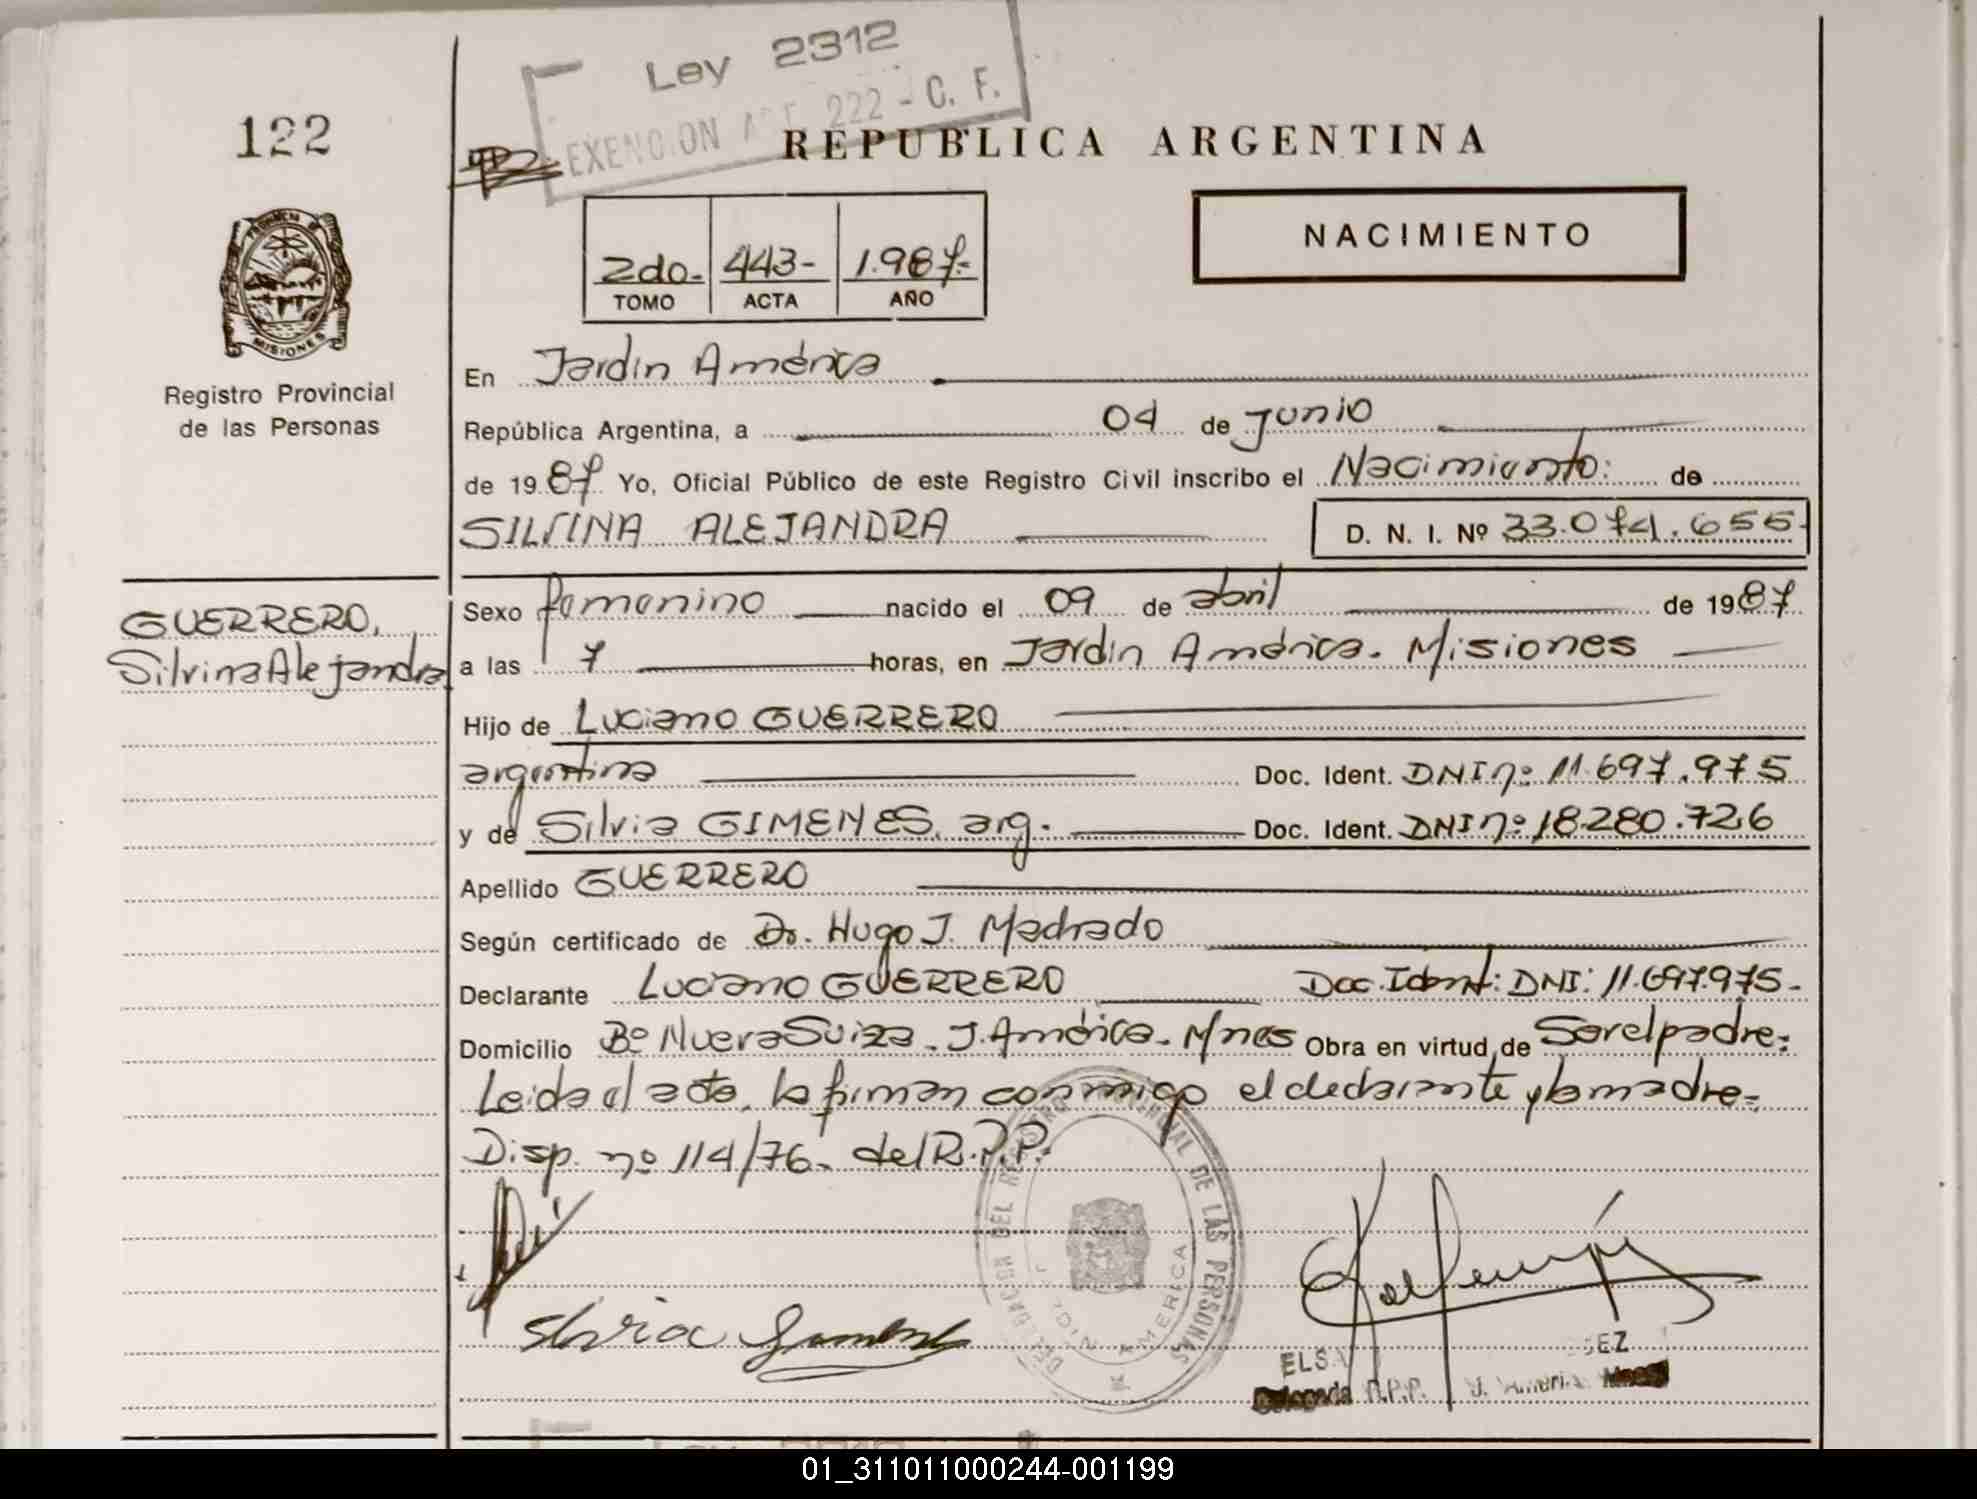 Ley 2312
EXENCION ART 222 - C. F.
122
REPUBLICA ARGENTINA
NACIMIENTO
2do.- 443- 1.987.-
TOMO ACTA AÑO
PROVINCIA DE
MISIONES
Registro Provincial
de las Personas
En Jardín América
República Argentina, a 04 de Junio
de 1987 Yo, Oficial Público de este Registro Civil inscribo el Nacimiento: de
SILVINA ALEJANDRA D. N. I. Nº 33.074.655-
GUERRERO,
Silvina Alejandra
Sexo femenino nacido el 09 de abril de 1987
a las 7 horas, en Jardín América. Misiones
Hijo de Luciano GUERRERO
argentina Doc. Ident. DNI nº 11.697.975
y de Silvia GIMENES, arg. Doc. Ident. DNI nº 18.280.726
Apellido GUERRERO
Según certificado de Dr. Hugo J. Madrado
Declarante Luciano GUERRERO Doc. Ident: DNI: 11.697.975-
Domicilio Bº Nueva Suiza. J. América. Mnes Obra en virtud de Ser el padre:
Leida el acta, la firman conmigo el declarante y la madre=
Disp. nº 114/76. del R.P.P.
DELEGACION DEL REGISTRO PROVINCIAL DE LAS PERSONAS
JARDIN AMERICA
Silvia Gimenes
ELSA
Delegada R.P.P. J. América Mnes
Ley 2312
01_311011000244-001199